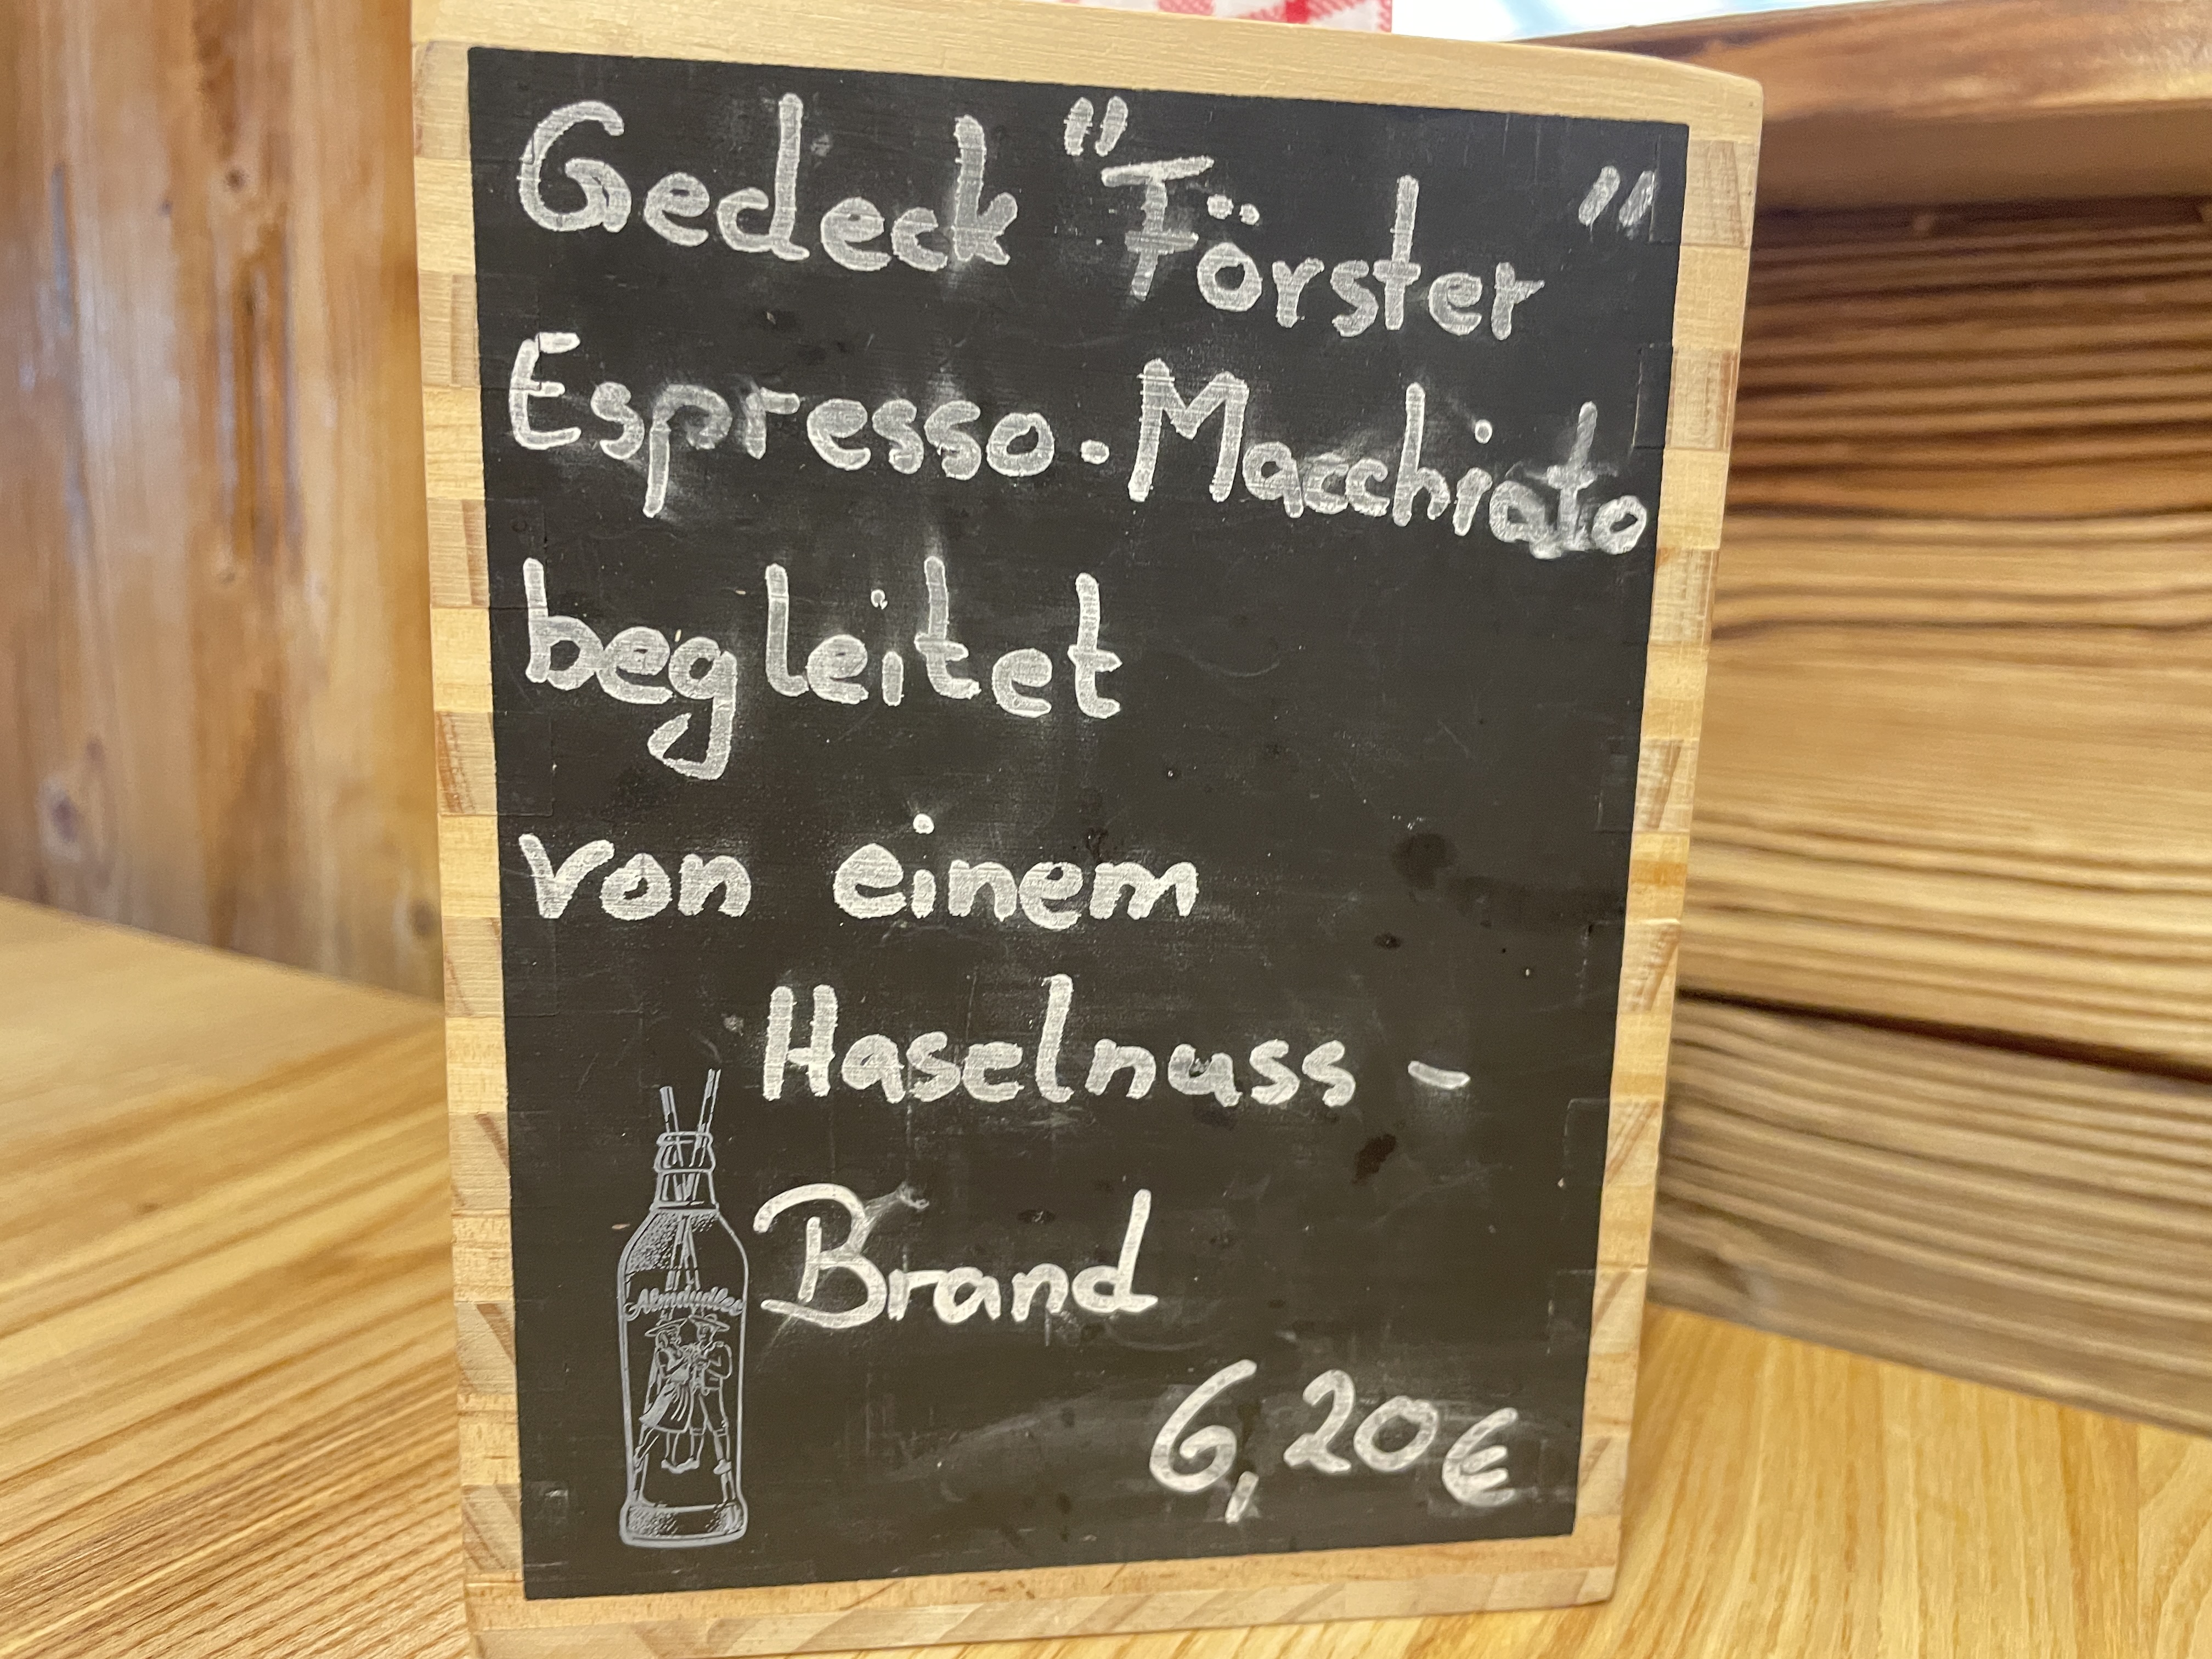 Gedeck "Förster"
Espresso-Macchiato
begleitet
von einem
Haselnuss-
Brand
Almdudler
6,20€